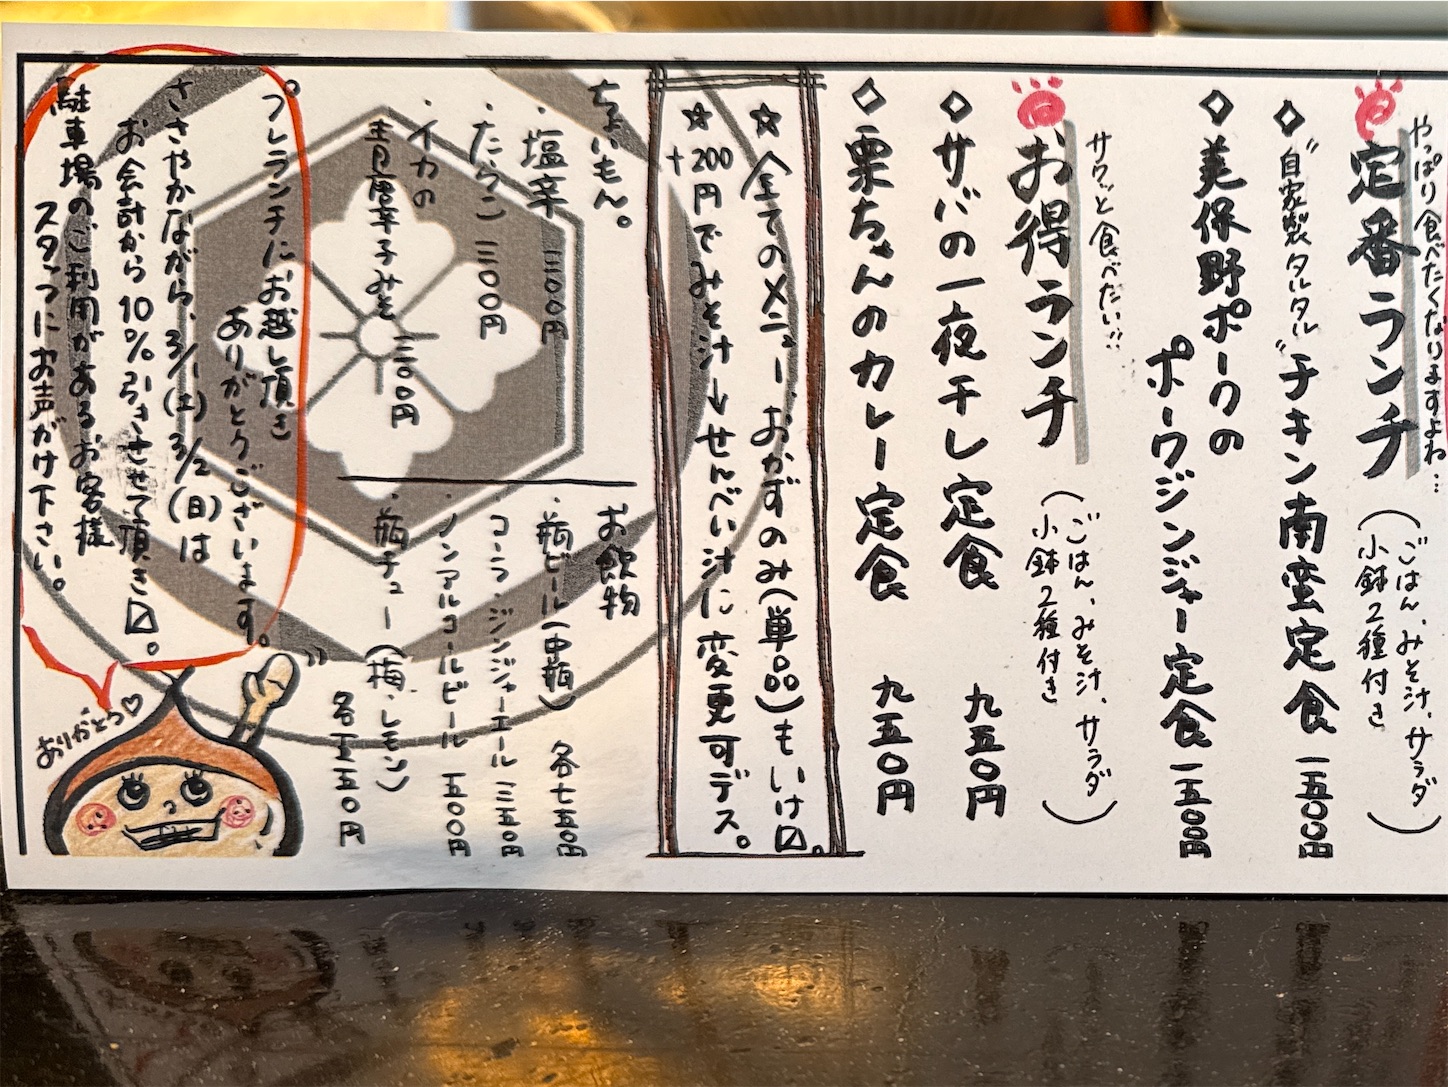 やっぱり食べたくなりますよね…
定番ランチ
(ごはん、みそ汁、サラダ
小鉢2種付き)
◇"自家製タルタル"チキン南蛮定食 一五〇〇円
◇美保野ポークの
ポークジンジャー定食 一五〇〇円
サクッと食べたい!!
お得ランチ
(ごはん、みそ汁、サラダ
小鉢2種付き)
◇サバの一夜干し定食 九五〇円
◇栗ちゃんのカレー定食 九五〇円
☆全てのメニュー、おかずのみ(単品)もいけ〼。
☆+200円でみそ汁→せんべい汁に変更可デス。
ちょいもん。
・塩辛 三〇〇円
・たらこ 三〇〇円
・イカの
青唐辛子みそ 三〇〇円
お飲物
・瓶ビール(中瓶) 各七五〇円
・コーラ・ジンジャーエール 三五〇円
・ノンアルコールビール 五〇〇円
・瓶チュー(梅、レモン)
各五五〇円
プレランチにお越し頂き
ありがとうございます。
ささやかながら、3/1(土)3/2(日)は
お会計から10%引きさせて頂き〼。
駐車場のご利用があるお客様
スタッフにお声がけ下さい。
ありがとう♡